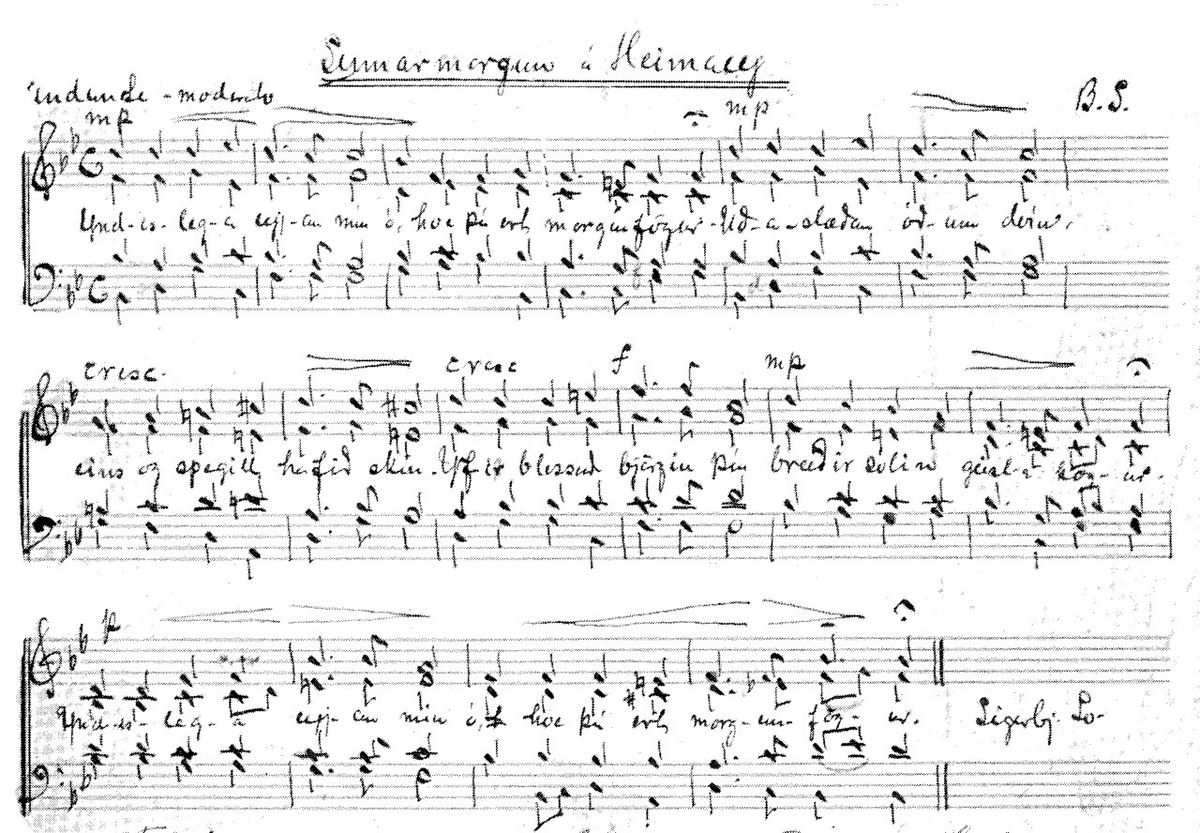 Sumarmorgun á Heimaey
Andante - moderato
B. S.
mp mp
Und-is-leg-a eyj-an mín ó, hve þú ert morgunfögur. Úð-a-slæðan óð-um dvín,
cresc. cresc f mp
eins og spegill hafið skín. Yf-ir blessuð björgin þín breiðir sólin geisl-a kög-ur.
p
Und-is-leg-a eyj-an mín ó, hve þú ert morg-un-fög-ur. Sigurbj. Sv-